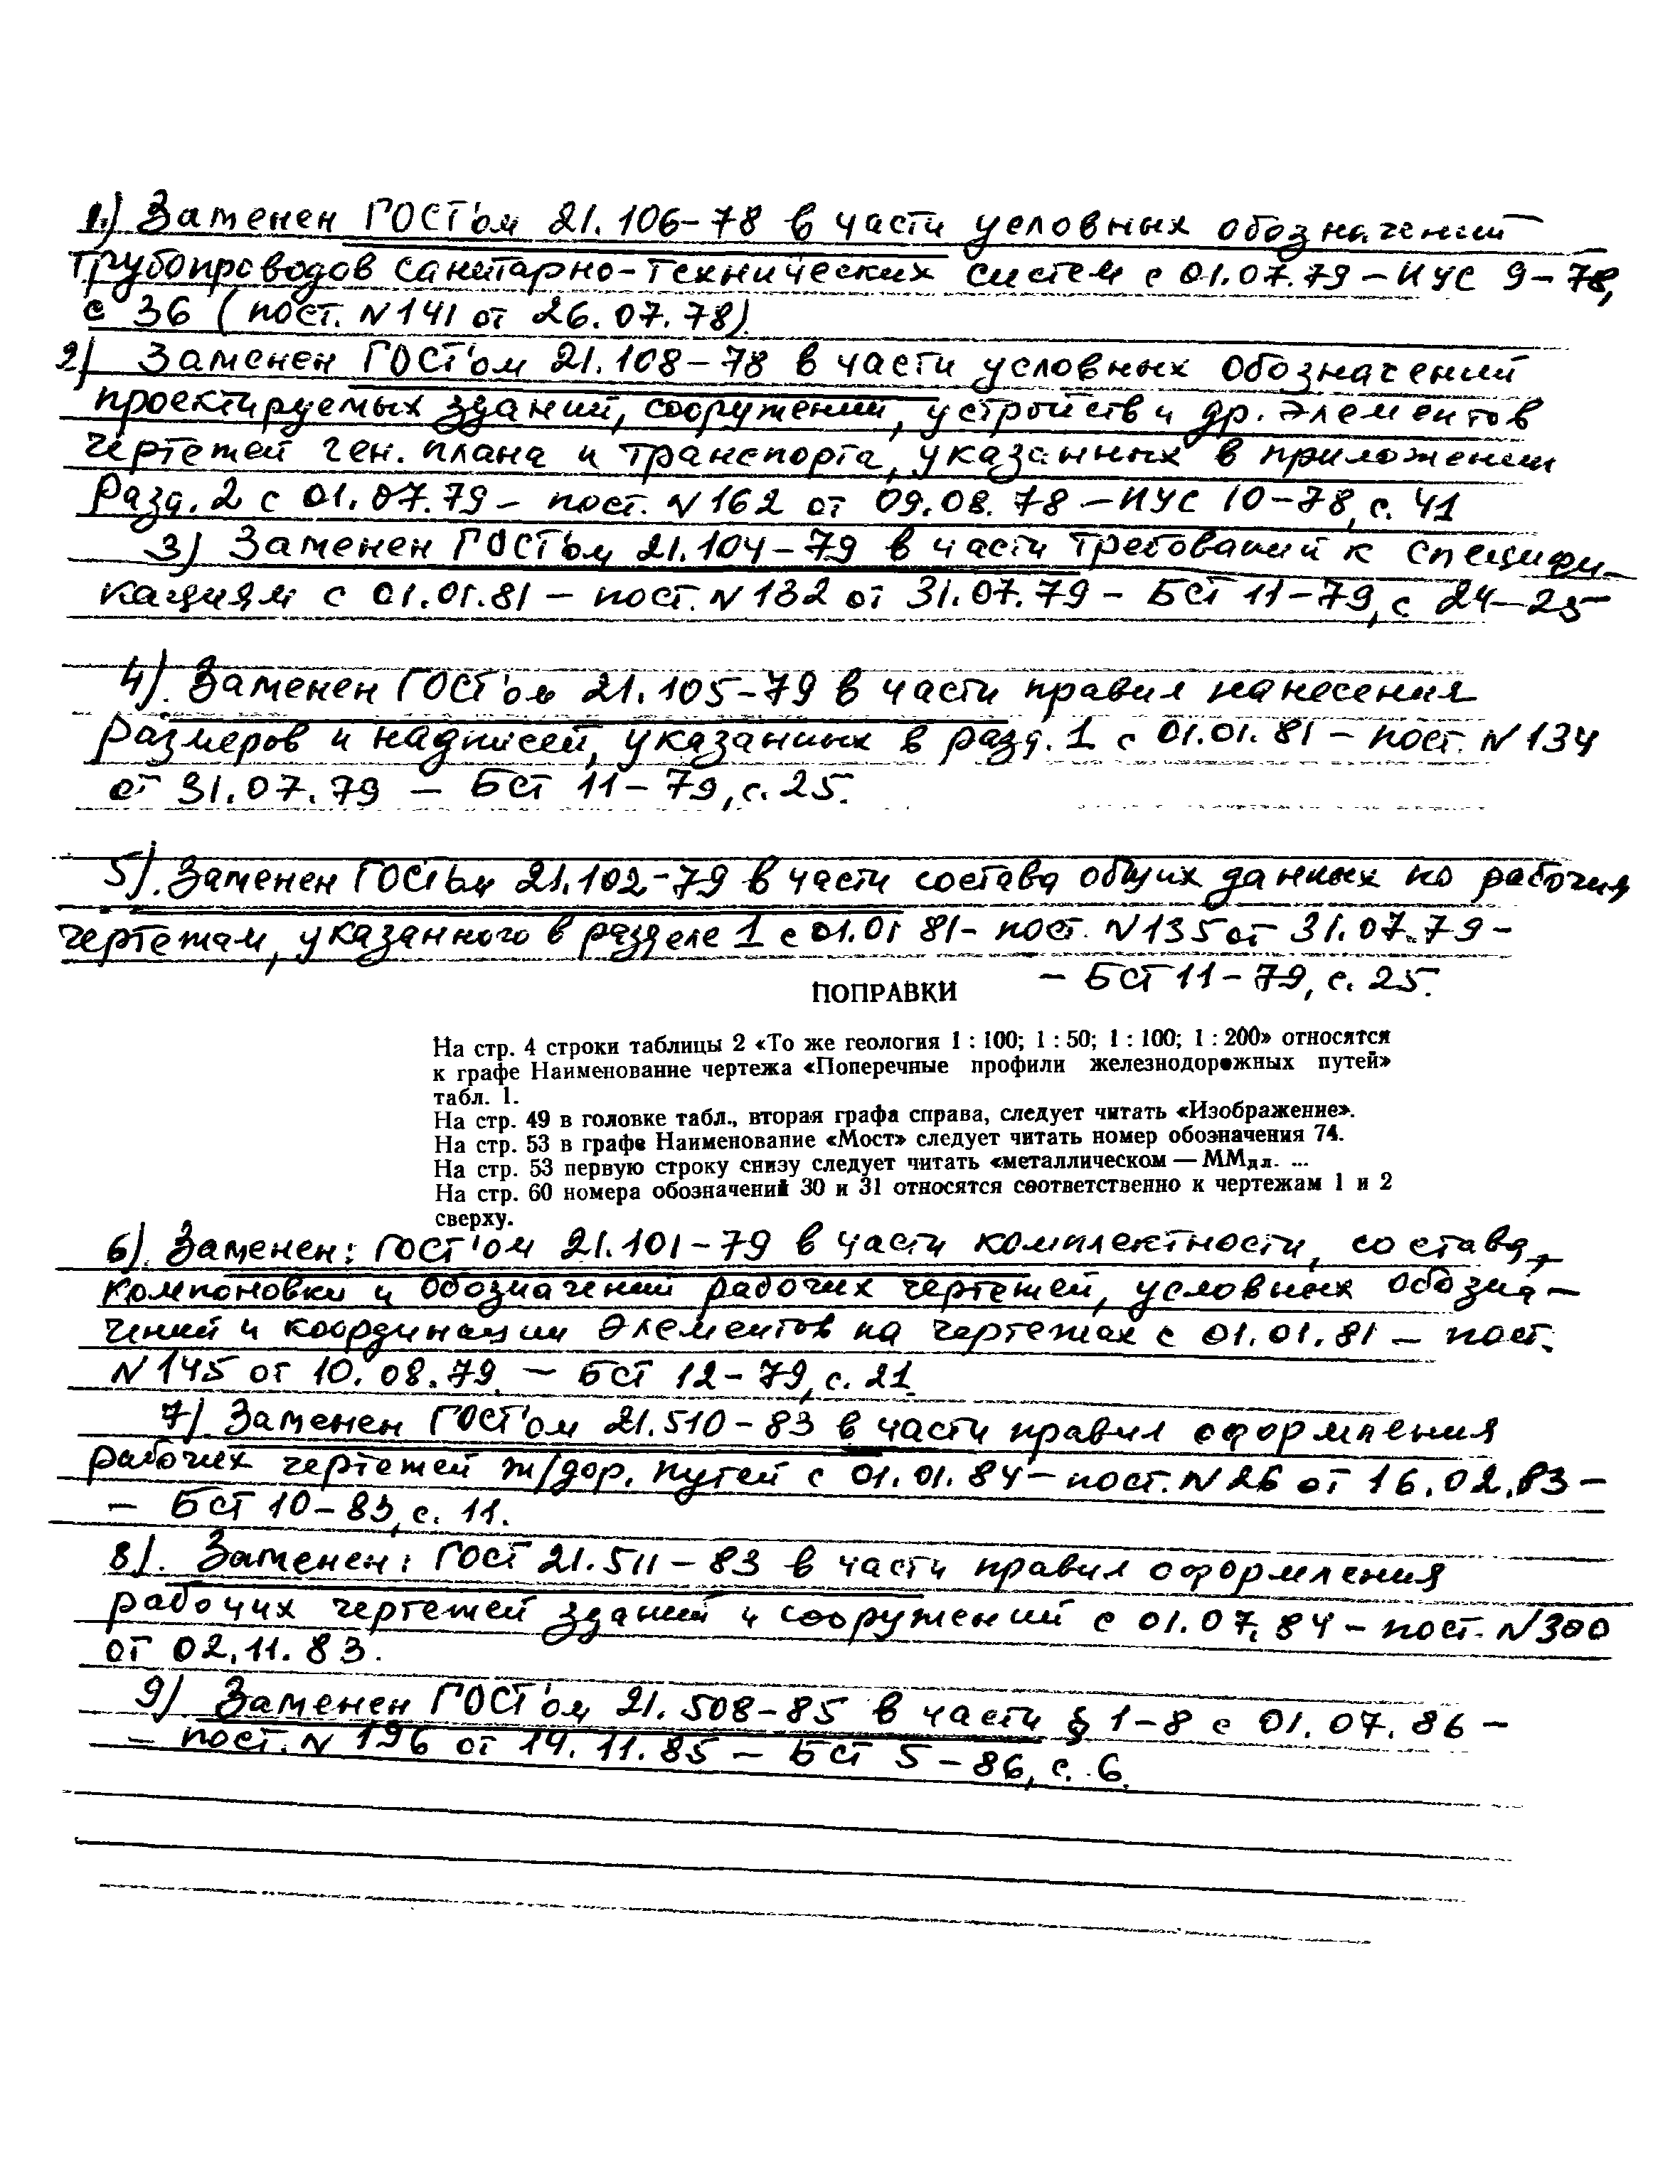 1.) Заменен ГОСТ'ом 21.106-78 в части условных обозначений
трубопроводов санитарно-технических систем с 01.07.79 – ИУС 9-78,
с 36 (пост. N 141 от 26.07.78).
2) Заменен ГОСТ'ом 21.108-78 в части условных обозначений
проектируемых зданий, сооружений, устройств и др. элементов
чертежей ген. плана и транспорта, указанных в приложении
Разд. 2 с 01.07.79 – пост. N 162 от 09.08.78 – ИУС 10-78, с. 41
3) Заменен ГОСТ'ом 21.104-79 в части требований к специфи-
кациям с 01.01.81 – пост. N 132 от 31.07.79 – БСТ 11-79, с 24-25
4). Заменен ГОСТ'ом 21.105-79 в части правил нанесения
размеров и надписей, указанных в разд. 1 с 01.01.81 – пост. N 134
от 31.07.79 – БСТ 11-79, с. 25.
5). Заменен ГОСТ'ом 21.102-79 в части состава общих данных по рабочим
чертежам, указанного в разделе 1 с 01.01 81 – пост. N 135 от 31.07.79 –
– БСТ 11-79, с. 25.
ПОПРАВКИ
На стр. 4 строки таблицы 2 «То же геология 1 : 100; 1 : 50; 1 : 100; 1 : 200» относятся
к графе Наименование чертежа «Поперечные профили железнодорожных путей»
табл. 1.
На стр. 49 в головке табл., вторая графа справа, следует читать «Изображение».
На стр. 53 в графе Наименование «Мост» следует читать номер обозначения 74.
На стр. 53 первую строку снизу следует читать «металлическом — ММдл. ...
На стр. 60 номера обозначений 30 и 31 относятся соответственно к чертежам 1 и 2
сверху.
6). Заменен: ГОСТ'ом 21.101-79 в части комплектности, состава,
компоновки и обозначений рабочих чертежей, условных обозна-
чений и координации элементов на чертежах с 01.01.81 – пост.
N 145 от 10.08.79. – БСТ 12-79, с. 21.
7). Заменен ГОСТ'ом 21.510-83 в части правил оформления
рабочих чертежей ж/дор. путей с 01.01.84 – пост. N 26 от 16.02.83 –
– БСТ 10-83, с. 11.
8). Заменен: ГОСТ 21.511-83 в части правил оформления
рабочих чертежей зданий и сооружений с 01.07.84 – пост. N 300
от 02.11.83.
9) Заменен ГОСТ'ом 21.508-85 в части § 1-8 с 01.07.86 –
– пост. N 196 от 14.11.85 – БСТ 5-86, с. 6.